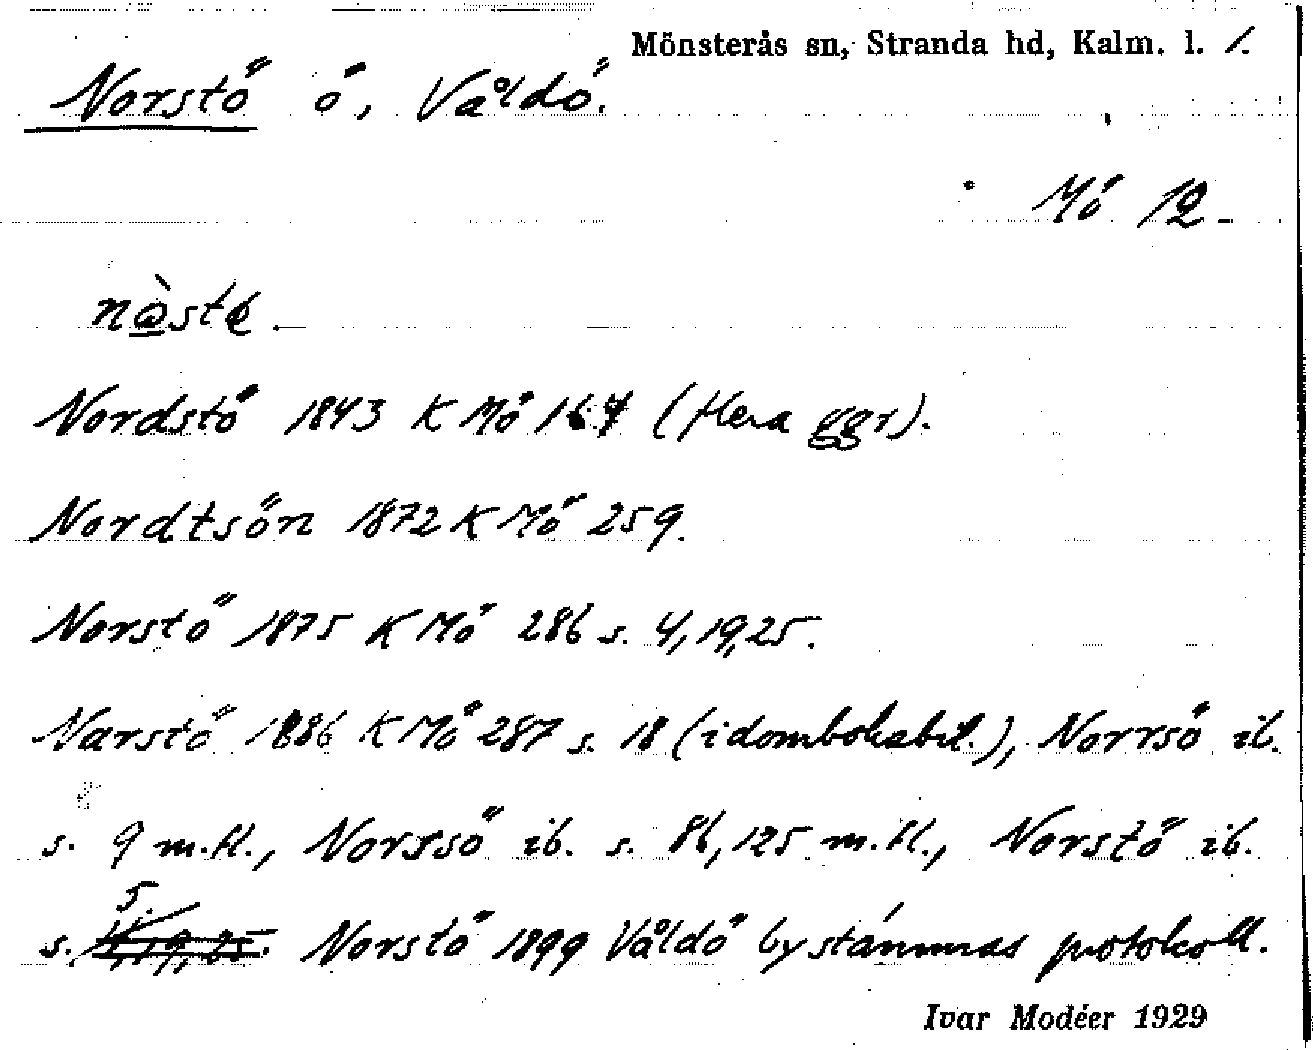 Mönsterås sn, Stranda hd, Kalm. l. /.
Norstö ö, Våldö.
Mö 12
nàsté.
Nordstö 1843 K Mö 167 (flera ggr).
Nordtsön 1872 K Mö 259.
Norstö 1875 K Mö 286 s. 4,19,25.
Narstö 1886 K Mö 287 s. 18 (idombokabil.), Norrsö ib.
s. 9 m.fl., Norssö ib. s. 86,125 m.fl., Norstö ib.
s. 5. Norstö 1899 Våldö bystämmas protokoll.
Ivar Modéer 1929